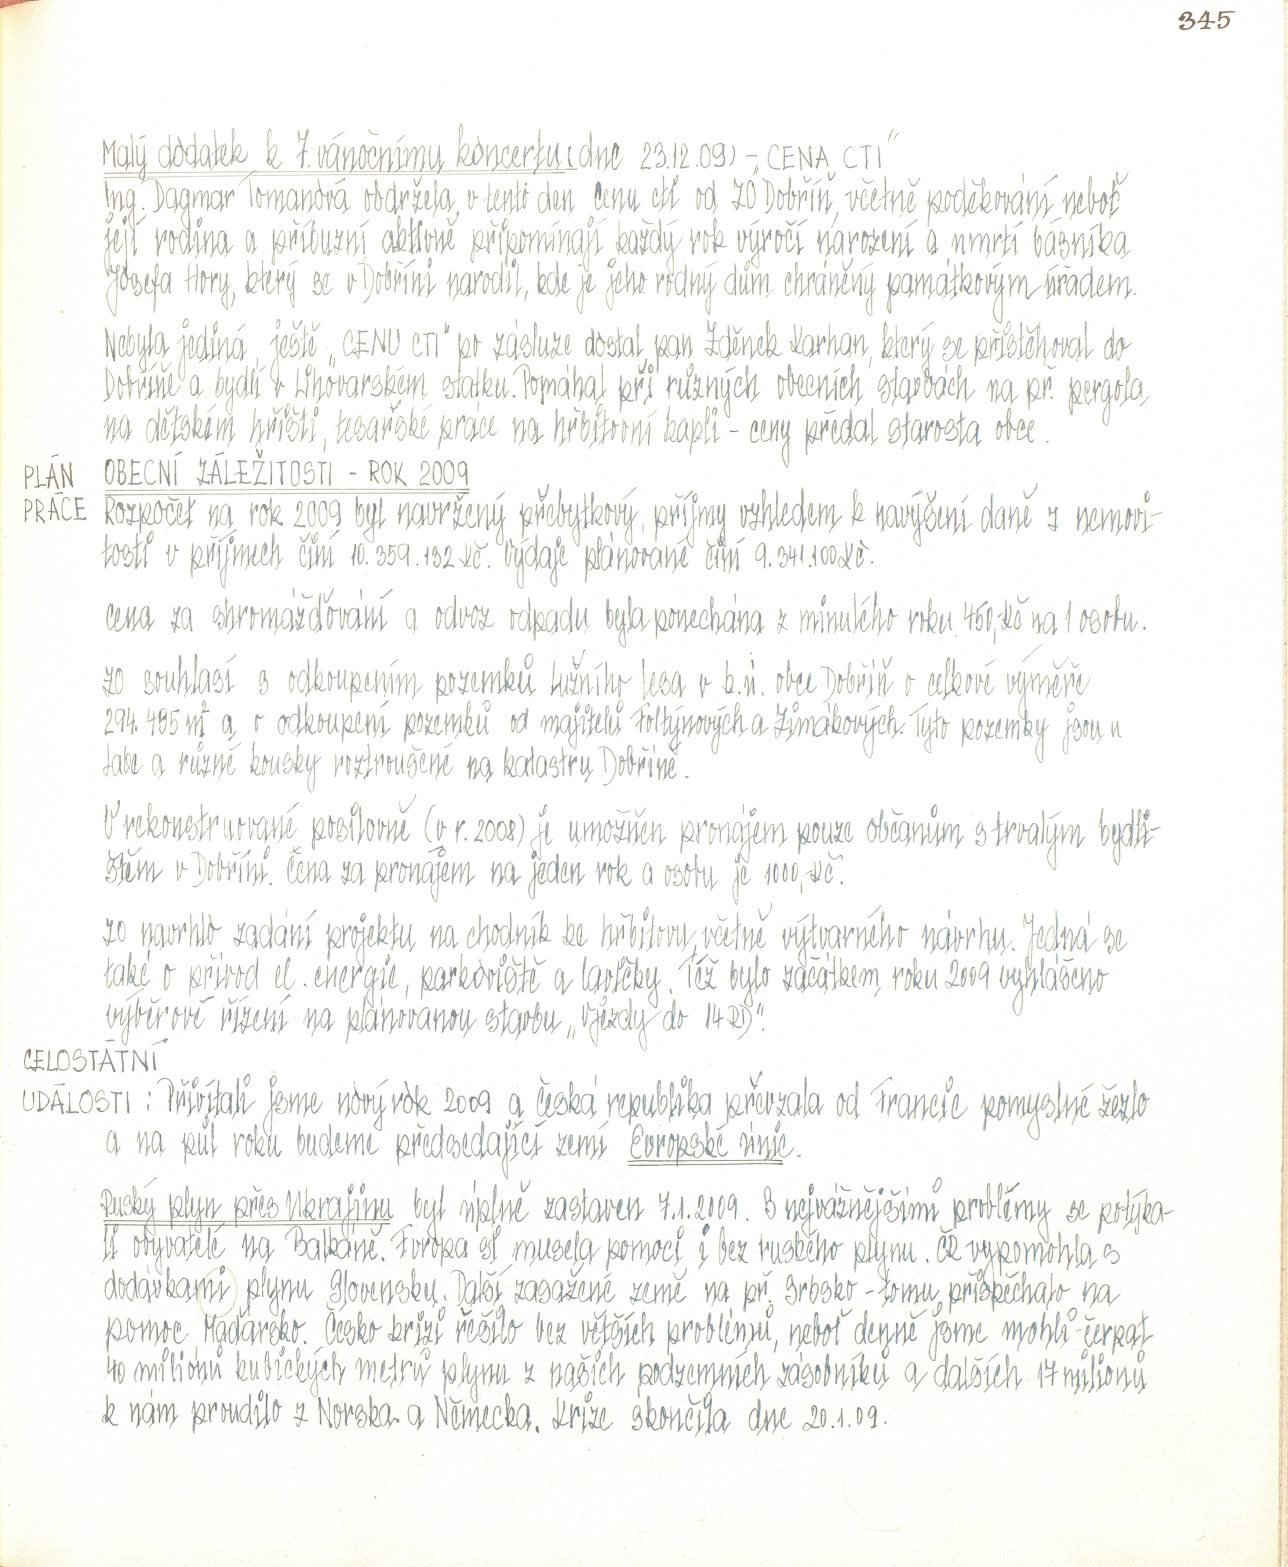 345
Malý dodatek k 7. vánočnímu koncertu (dne 23.12.09) - „CENA CTI"
Ing. Dagmar Tomanová obdržela, v tento den cenu cti od ZO Dobříň, včetně poděkování, neboť
její rodina a příbuzní aktivně připomínají každý rok výročí narození a úmrtí básníka
Josefa Hory, který se v Dobříni narodil, kde je jeho rodný dům chráněný památkovým úřadem.
Nebyla jediná, ještě „CENU CTI" po zásluze dostal pan Zděnek Karhan, který se přistěhoval do
Dobříně a bydlí v Lihovarském statku. Pomáhal při různých obecních stavbách na př. pergola
na dětském hřišti, tesařské práce na hřbitovní kapli - ceny předal starosta obce.
PLÁN OBECNÍ ZÁLEŽITOSTI - ROK 2009
PRÁCE Rozpočet na rok 2009 byl navržený přebytkový, příjmy vzhledem k navýšení daně z nemovi-
tostí v příjmech činí 10.359.132 Kč. Výdaje plánované činí 9.341.100 Kč.
Cena za shromážďování a odvoz odpadu byla ponechána z minulého roku 450,Kč na 1 osobu.
ZO souhlasí s odkoupením pozemků Lužního lesa v k.ú. obce Dobříň o celkové výměře
294.485 m² a o odkoupení pozemků od majitelů Foltýnových a Zimákových. Tyto pozemky jsou u
Labe a různé kousky roztroušené na katastru Dobříně.
V rekonstruované posilovně (v r. 2008) je umožněn pronájem pouze občanům s trvalým bydli-
štěm v Dobříni. Cena za pronájem na jeden rok a osobu je 1000,Kč.
ZO navrhlo zadání projektu na chodník ke hřbitovu, včetně výtvarného návrhu. Jedná se
také o přívod el. energie, parkoviště a lavičky. Též bylo začátkem roku 2009 vyhlášeno
výběrové řízení na plánovanou stavbu „Vjezdy do 14 RD".
CELOSTÁTNÍ
UDÁLOSTI : Přivítali jsme nový rok 2009 a Česká republika převzala od Francie pomyslné žezlo
a na půl roku budeme předsedající zemí Evropské unie.
Ruský plyn přes Ukrajinu byl úplně zastaven 7.1.2009. S nejvážnějšími problémy se potýka-
li obyvatelé na Balkáně. Evropa si musela pomoci i bez ruského plynu. ČR vypomohla s
dodávkami plynu Slovensku. Další zasažené země na př. Srbsko - tomu přispěchalo na
pomoc Maďarsko. Česko krizi řešilo bez větších problémů, neboť denně jsme mohli čerpat
40 milionů kubických metrů plynu z našich podzemních zásobníků a dalších 17 milionů
k nám proudilo z Norska a Německa. Krize skončila dne 20.1.09.